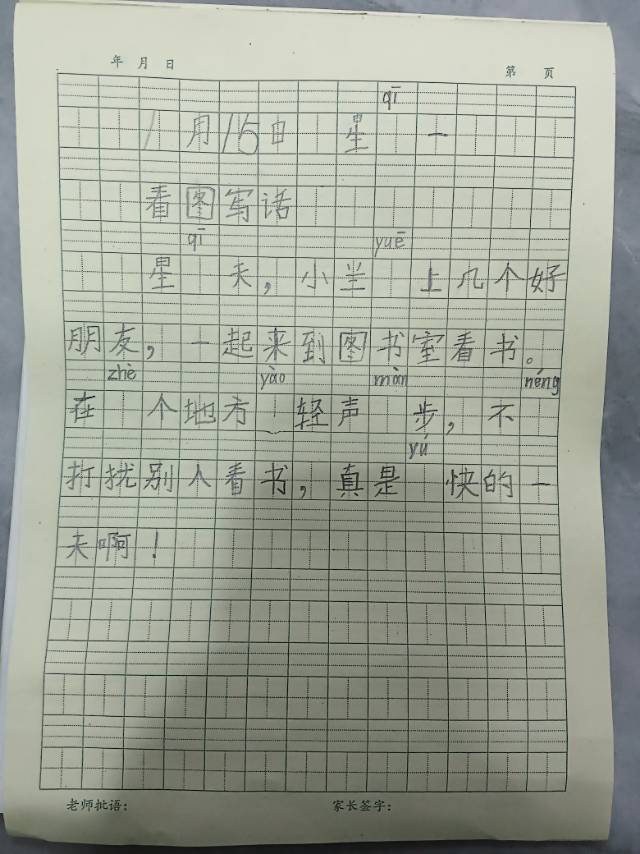 年 月 日
第 页
qī
1月15日 星 一
看图写话
qī yuē
星 天，小羊 上几个好
朋友，一起来到图书室看书。
zhè yào màn néng
在 个地方 轻声 步，不
yú
打扰别人看书，真是 快的一
天啊！
老师批语： 家长签字：